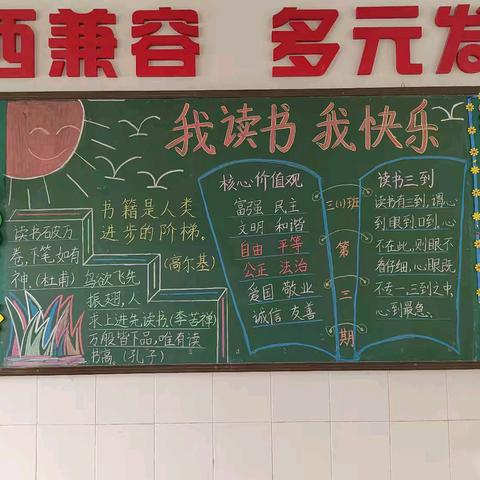 西兼容 多元发
我读书 我快乐
书籍是人类
进步的阶梯。
(高尔基)
读书破万
卷,下笔如有
神.(杜甫)
鸟欲飞先
振翅,人
求上进先读书(李苦禅)
万般皆下品,唯有读
书高。(孔子)
核心价值观
富强 民主
文明 和谐
自由 平等
公正 法治
爱国 敬业
诚信 友善
三(1)班
第
三
期
读书三到
读书有三到,谓心
到眼到.口到,心
不在此,则眼不
看仔细,心眼既
不专一,三到之中,
心到最急。